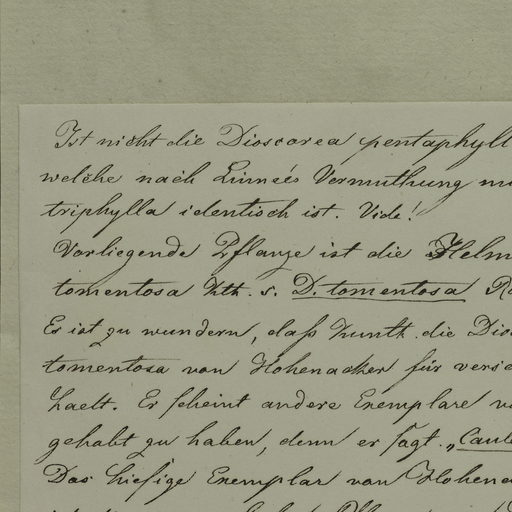 Ist nicht die Dioscorea pentaphyll
welche nach Linneés Vermuthung mi
triphylla identisch ist. Vide!
Vorliegende Pflanze ist die Helm
tomentosa Kth. s. D. tomentosa Ro
Es ist zu wundern, daß Kunth. die Dios
tomentosa von Hohenacker für versc
haelt. Er scheint andere Exemplare v
gehabt zu haben, denn er sagt. „Caul
Das hiesige Exemplar von Hohena